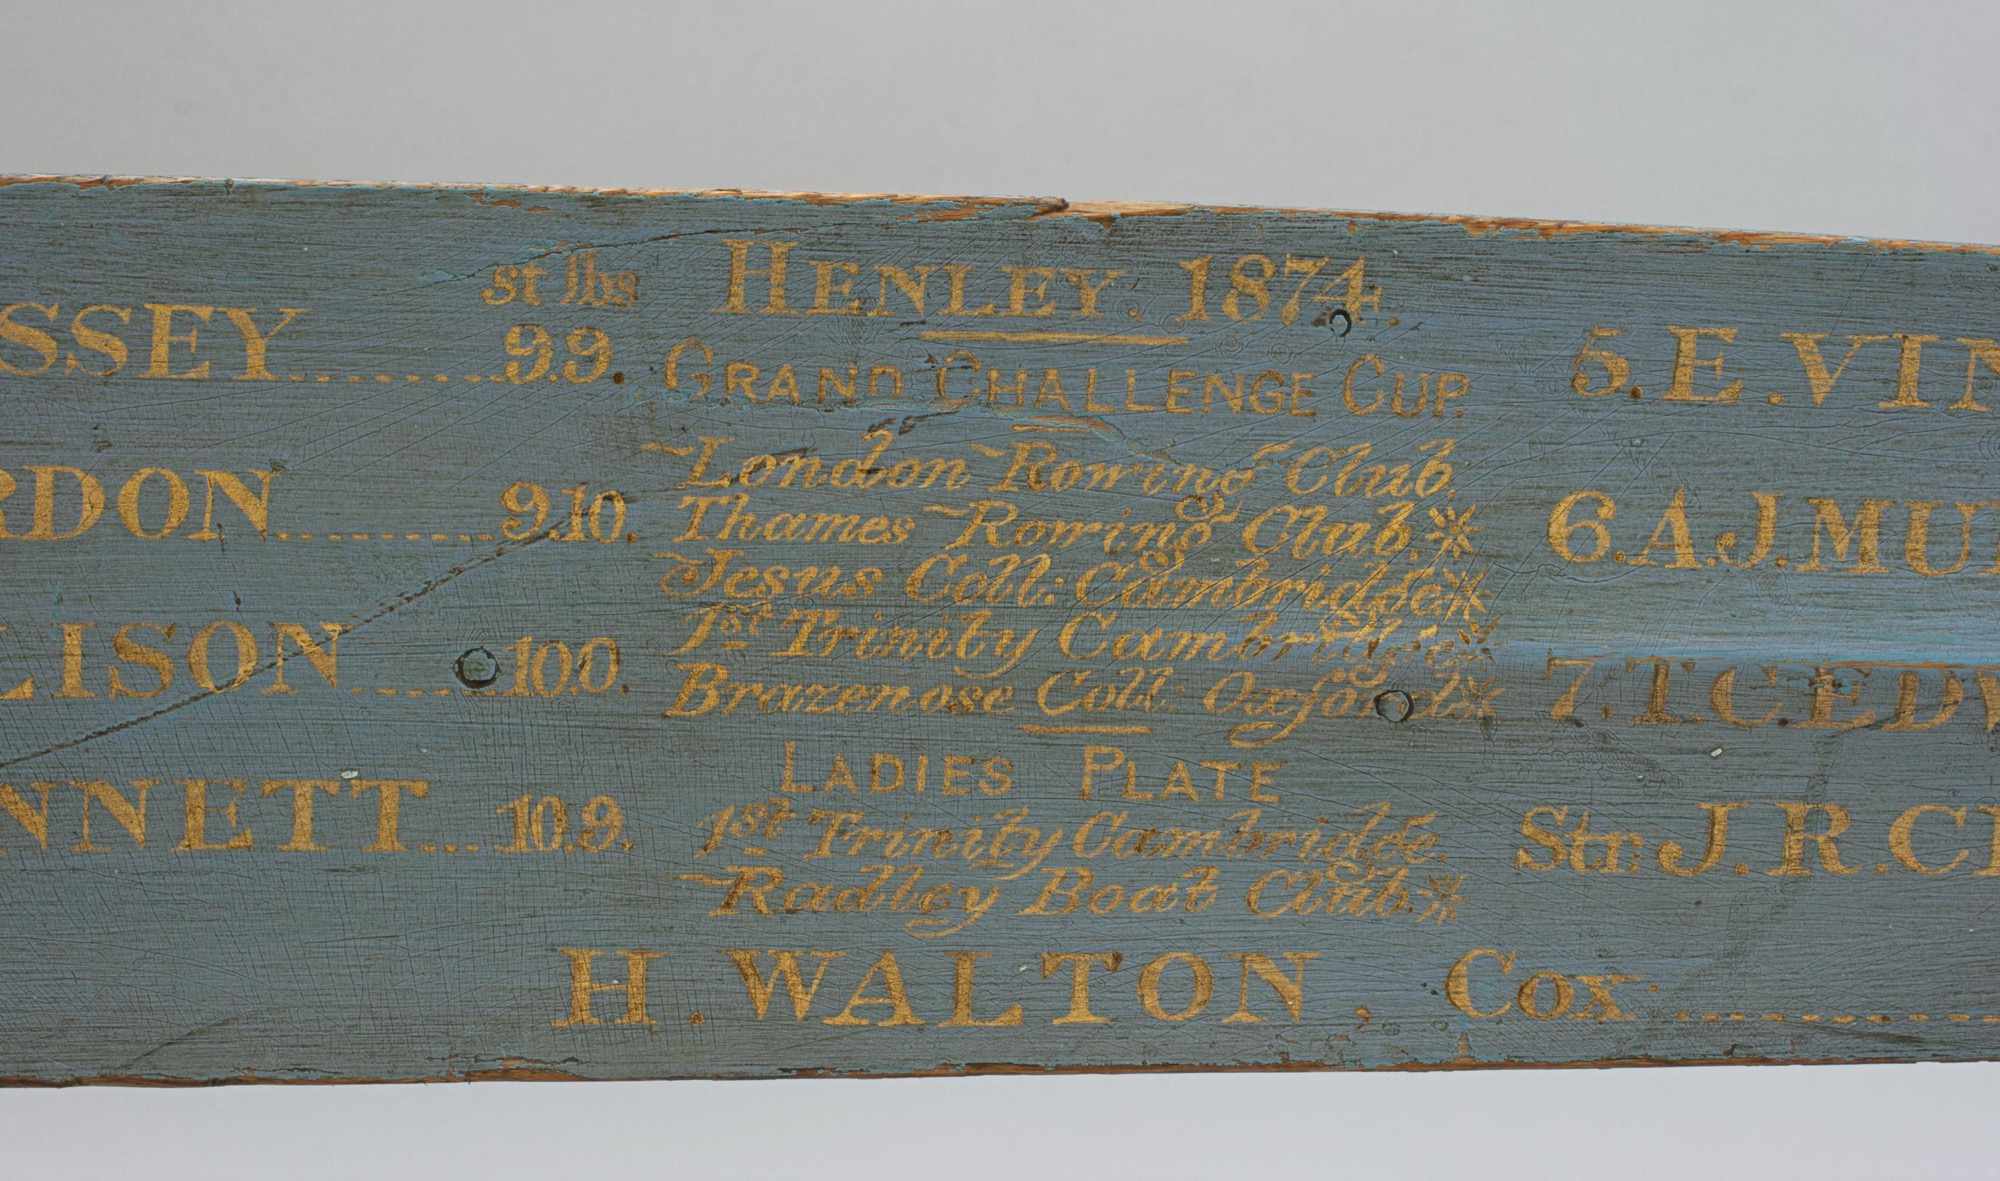 SSEY 9.9.
RDON 9.10.
LISON 10.0.
NNETT 10.9.
st lbs
HENLEY. 1874.
GRAND CHALLENGE CUP.
London Rowing Club.
Thames Rowing Club.*
Jesus Coll: Cambridge*
1st Trinity Cambridge*
Brazenose Coll: Oxford*
LADIES PLATE
1st Trinity Cambridge.
Radley Boat Club.*
H. WALTON, Cox
5. E. VIN
6. A.J. MU
7. T.C EDW
Str: J. R. C